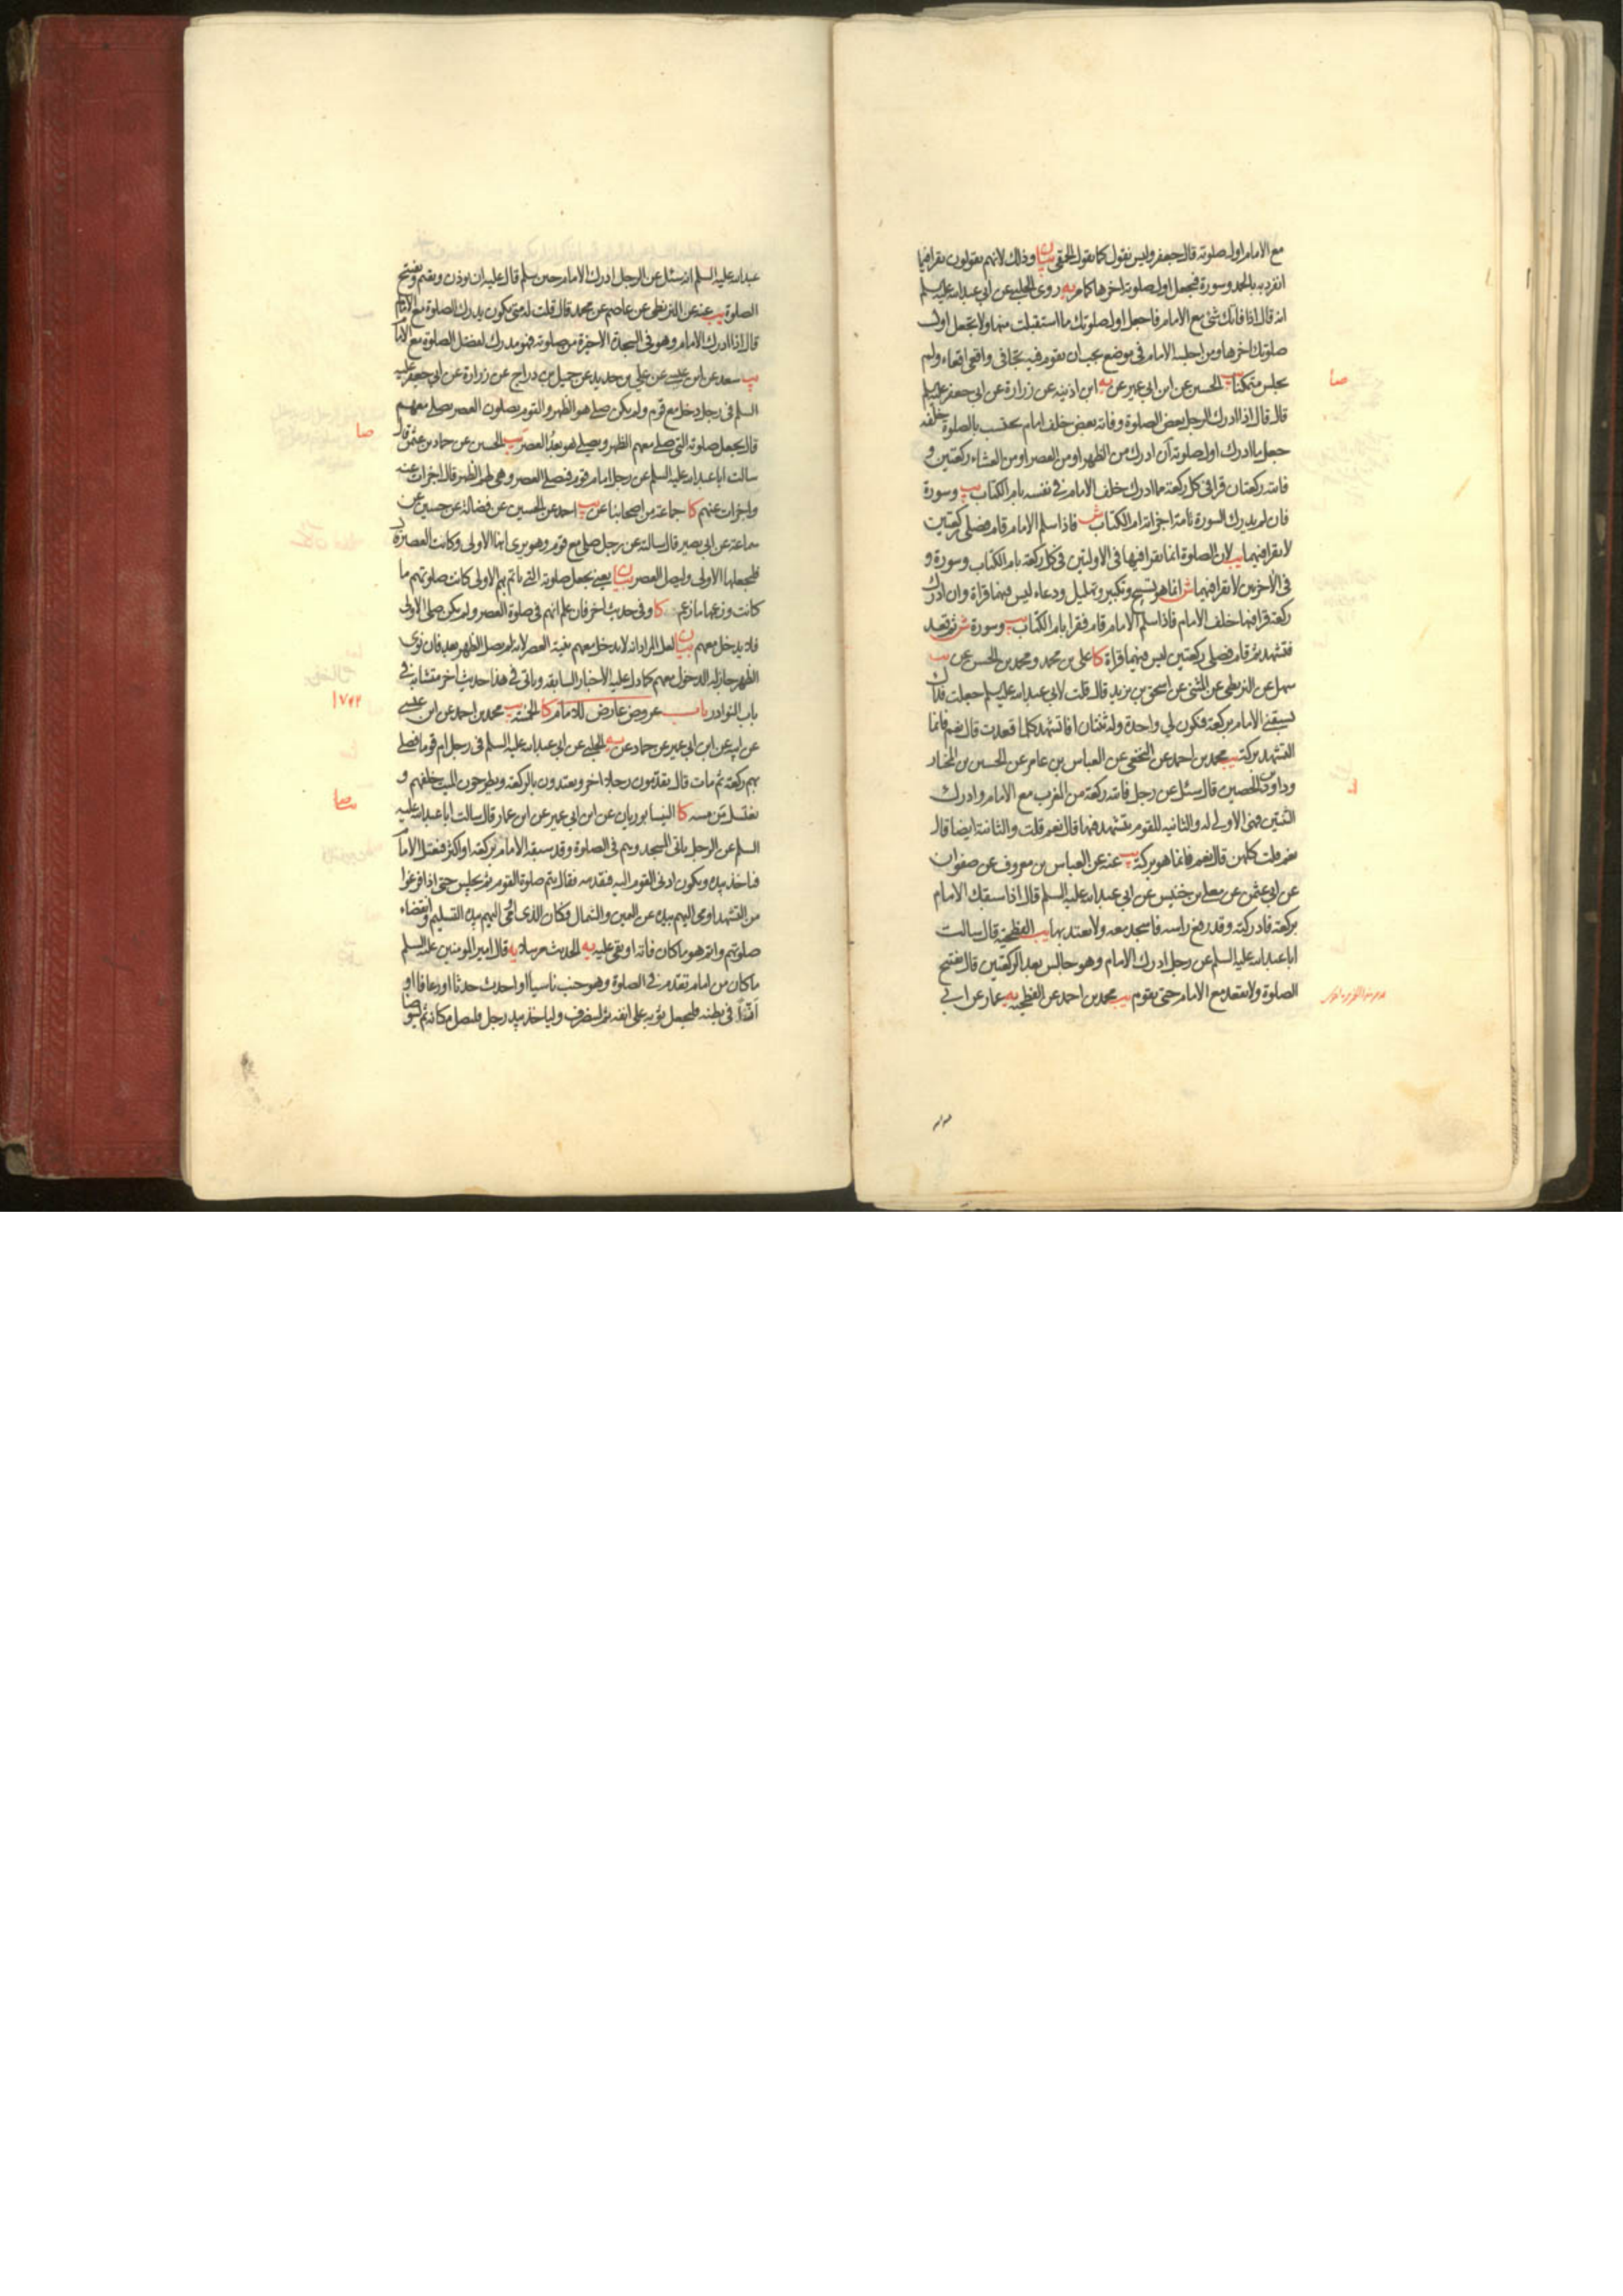 مع الامام اول صلوته قال جعفر وليس نقول كما يقول الحمقى بيان وذلك لانهم يقولون يقرا فيما
انفرد به بالحمد وسورة فيجعل اول صلوته اخرها كامر يه روى الحلبي عن ابي عبد الله عليه السلم
انه قال اذا فاتك شئ مع الامام فاجعل اول صلوتك ما استقبلت منها ولا تجعل اول
صلوتك اخرها ومن اجلسه الامام في موضع يجب ان يقوم فيه تجافى واقعى اقعاء ولم
يجلس متمكنا يب الحسين عن ابن ابي عمير عن يه ابن اذينه عن زرارة عن ابي جعفر عليه السلم
قال قال اذا ادرك الرجل بعض الصلوة وفاته بعض خلف امام يحتسب بالصلوة خلفه
جعل ما ادرك اول صلوته ان ادرك من الظهر او من العصر او من العشاء ركعتين و
فاتته ركعتان قرا في كل ركعة مما ادرك خلف الامام في نفسه بام الكتاب يب وسورة
فان لم يدرك السورة تامة اجزاته ام الكتاب ش فاذا سلم الامام قام فصلى ركعتين
لا يقرا فيهما يب لان الصلوة انما يقرا فيها في الاولتين في كل ركعة بام الكتاب وسورة و
في الاخرتين لا يقرا فيهما ش انما هو تسبيح وتكبير وتهليل ودعاء ليس فيهما قراة وان ادرك
ركعة قرا فيها خلف الامام فاذا سلم الامام قام فقرا بام الكتاب يب وسورة ش ثم قعد
فتشهد ثم قام فصلى ركعتين ليس فيهما قراة كا علي بن محمد ومحمد بن الحسن عن يب
سهل عن البزنطي عن المثنى عن اسحق بن يزيد قال قلت لابي عبد الله عليه السلم جعلت فداك
يسبقني الامام بركعة فتكون لي واحدة وله ثنتان افاتشهد كلما قعدت قال نعم فانما
التشهد بركة يب محمد بن احمد عن النخعي عن العباس بن عامر عن الحسين بن المختار
وداود بن الحصين قال سئل عن رجل فاتته ركعة من المغرب مع الامام وادرك
الثنتين فهي الاولى له والثانيه للقوم يتشهد فيها قال نعم قلت والثانية ايضا قال
نعم قلت كلهن قال نعم فانما هو بركة يب عنه عن العباس بن معروف عن صفوان
عن ابي عثمن عن معلى بن خنيس عن ابي عبد الله عليه السلم قال اذا سبقك الامام
بركعة فادركته وقد رفع راسه فاسجد معه ولا تعتد بها يب الفطحية قال سالت
ابا عبد الله عليه السلم عن رجل ادرك الامام وهو جالس بعد الركعتين قال يفتتح
الصلوة ولا يقعد مع الامام حتى يقوم يب محمد بن احمد عن الفطحيه يه عمار عن ابي
صا
عبد الله عليه السلم انه سئل عن الرجل ادرك الامام حين سلم قال عليه ان يوذن ويقيم ويفتتح
الصلوة يب عنه عن البزنطي عن عاصم عن محمد قال قلت له متى يكون يدرك الصلوة مع الامام
قال اذا ادرك الامام وهو في السجدة الاخيرة من صلوته فهو مدرك لفضل الصلوة مع الامام
يب سعد عن ابن عيسى عن علي بن حديد عن جميل بن دراج عن زرارة عن ابي جعفر عليه
السلم في رجل دخل مع قوم ولم يكن صلى هو الظهر والقوم يصلون العصر يصلي معهم
قال يجعل صلوته التي صلى معهم الظهر ويصلي هو بعد العصر يب الحسين عن حماد بن عثمن قال
سالت ابا عبد الله عليه السلم عن رجل امام قوم فصلى العصر وهي لهم الظهر قال اجزات عنه
واجزات عنهم كا جماعة من اصحابنا عن يب احمد عن الحسين عن فضالة عن حسين عن
سماعة عن ابي بصير قال سالته عن رجل صلى مع قوم وهو يرى انها الاولى وكانت العصر قال
فليجعلها الاولى وليصل العصر بيان يعني يجعل صلوته التي ياتم بهم الاولى كانت صلوتهم ما
كانت وزعمها ما زعم كا وفي حديث اخر فان علم انهم في صلوة العصر ولم يكن صلى الاولى
فلا يدخل معهم بيان لعل المراد انه لا يدخل معهم بنية العصر لانه لم يصل الظهر بعد فان نوى
الظهر جاز له الدخول معهم كما دل عليه الاخبار السابقة وياتي في هذا حديث اخر متشابه في
باب النوادر باب عروض عارض للامام كا الخمسة يب محمد بن احمد عن ابن عيسى
عن ابيه عن ابن ابي عمير عن حماد عن يه الحلبي عن ابي عبد الله عليه السلم في رجل ام قوما فصلى
بهم ركعة ثم مات قال يقدمون رجلا اخر ويعتدون بالركعة ويطرحون الميت خلفهم و
يغتسل من مسه كا النيسابوريان عن ابن ابي عمير عن ابن عمار قال سالت ابا عبد الله عليه
السلم عن الرجل ياتي المسجد وهم في الصلوة وقد سبقه الامام بركعة او اكثر فيعتل الامام
فياخذ بيده ويكون ادنى القوم اليه فيقدمه فقال يتم صلوة القوم ثم يجلس حتى اذا فرغوا
من التشهد اومى اليهم بيده عن اليمين والشمال فكان الذي اومى اليهم بيده التسليم وانقضاء
صلوتهم واتم هو ما كان فاته او بقي عليه يه الحديث مرسلا يه قال امير المومنين عليه السلم
ما كان من امام تقدم في الصلوة وهو جنب ناسيا او احدث حدثا او رعافا او
ازا في بطنه فليجعل ثوبه على انفه ثم لينصرف ولياخذ بيد رجل فليصل مكانه ثم ليتوضا
صا
۱۷۴۲